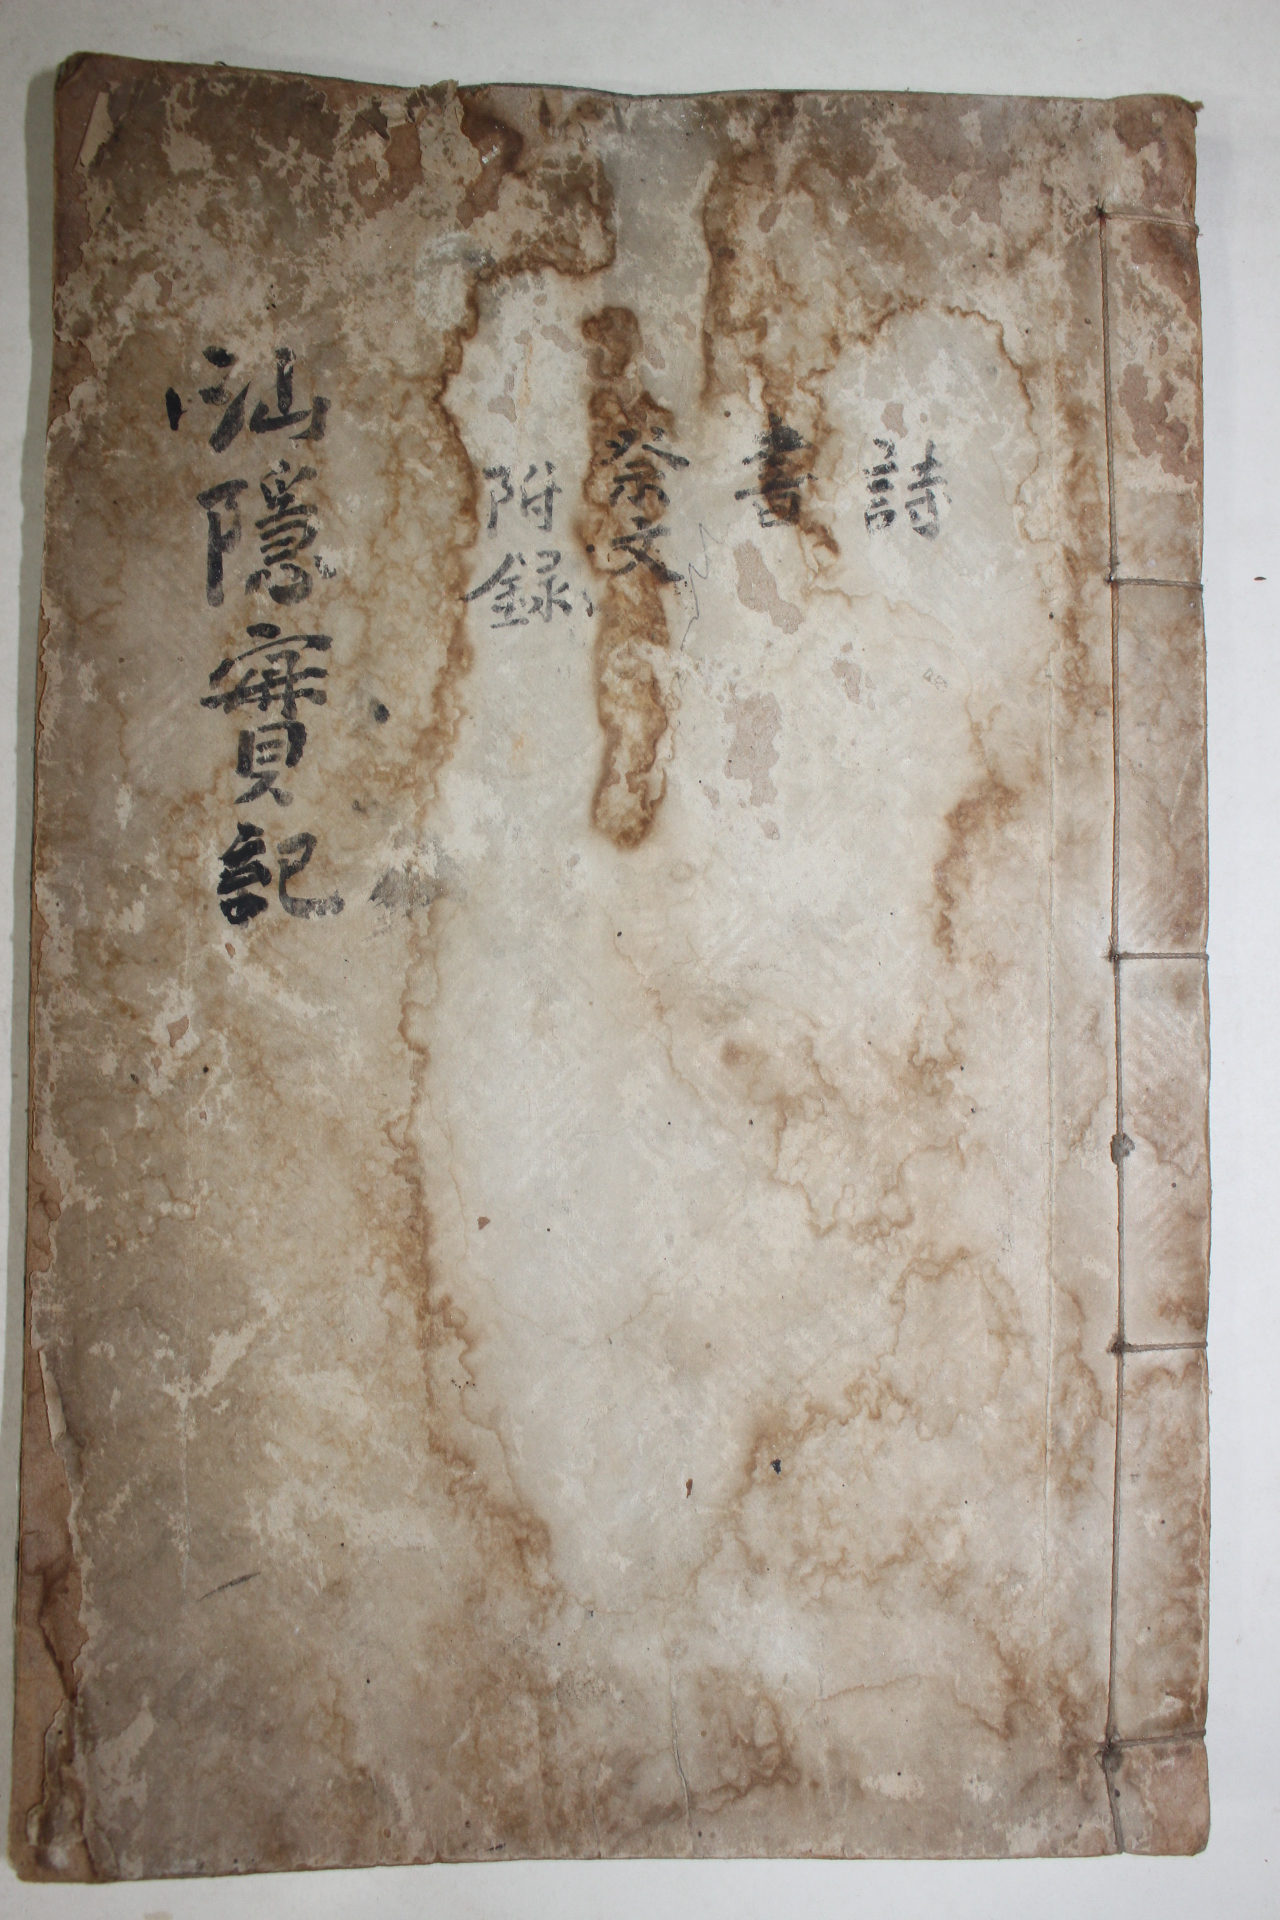 詩
書
祭文
附録
汕隱實記